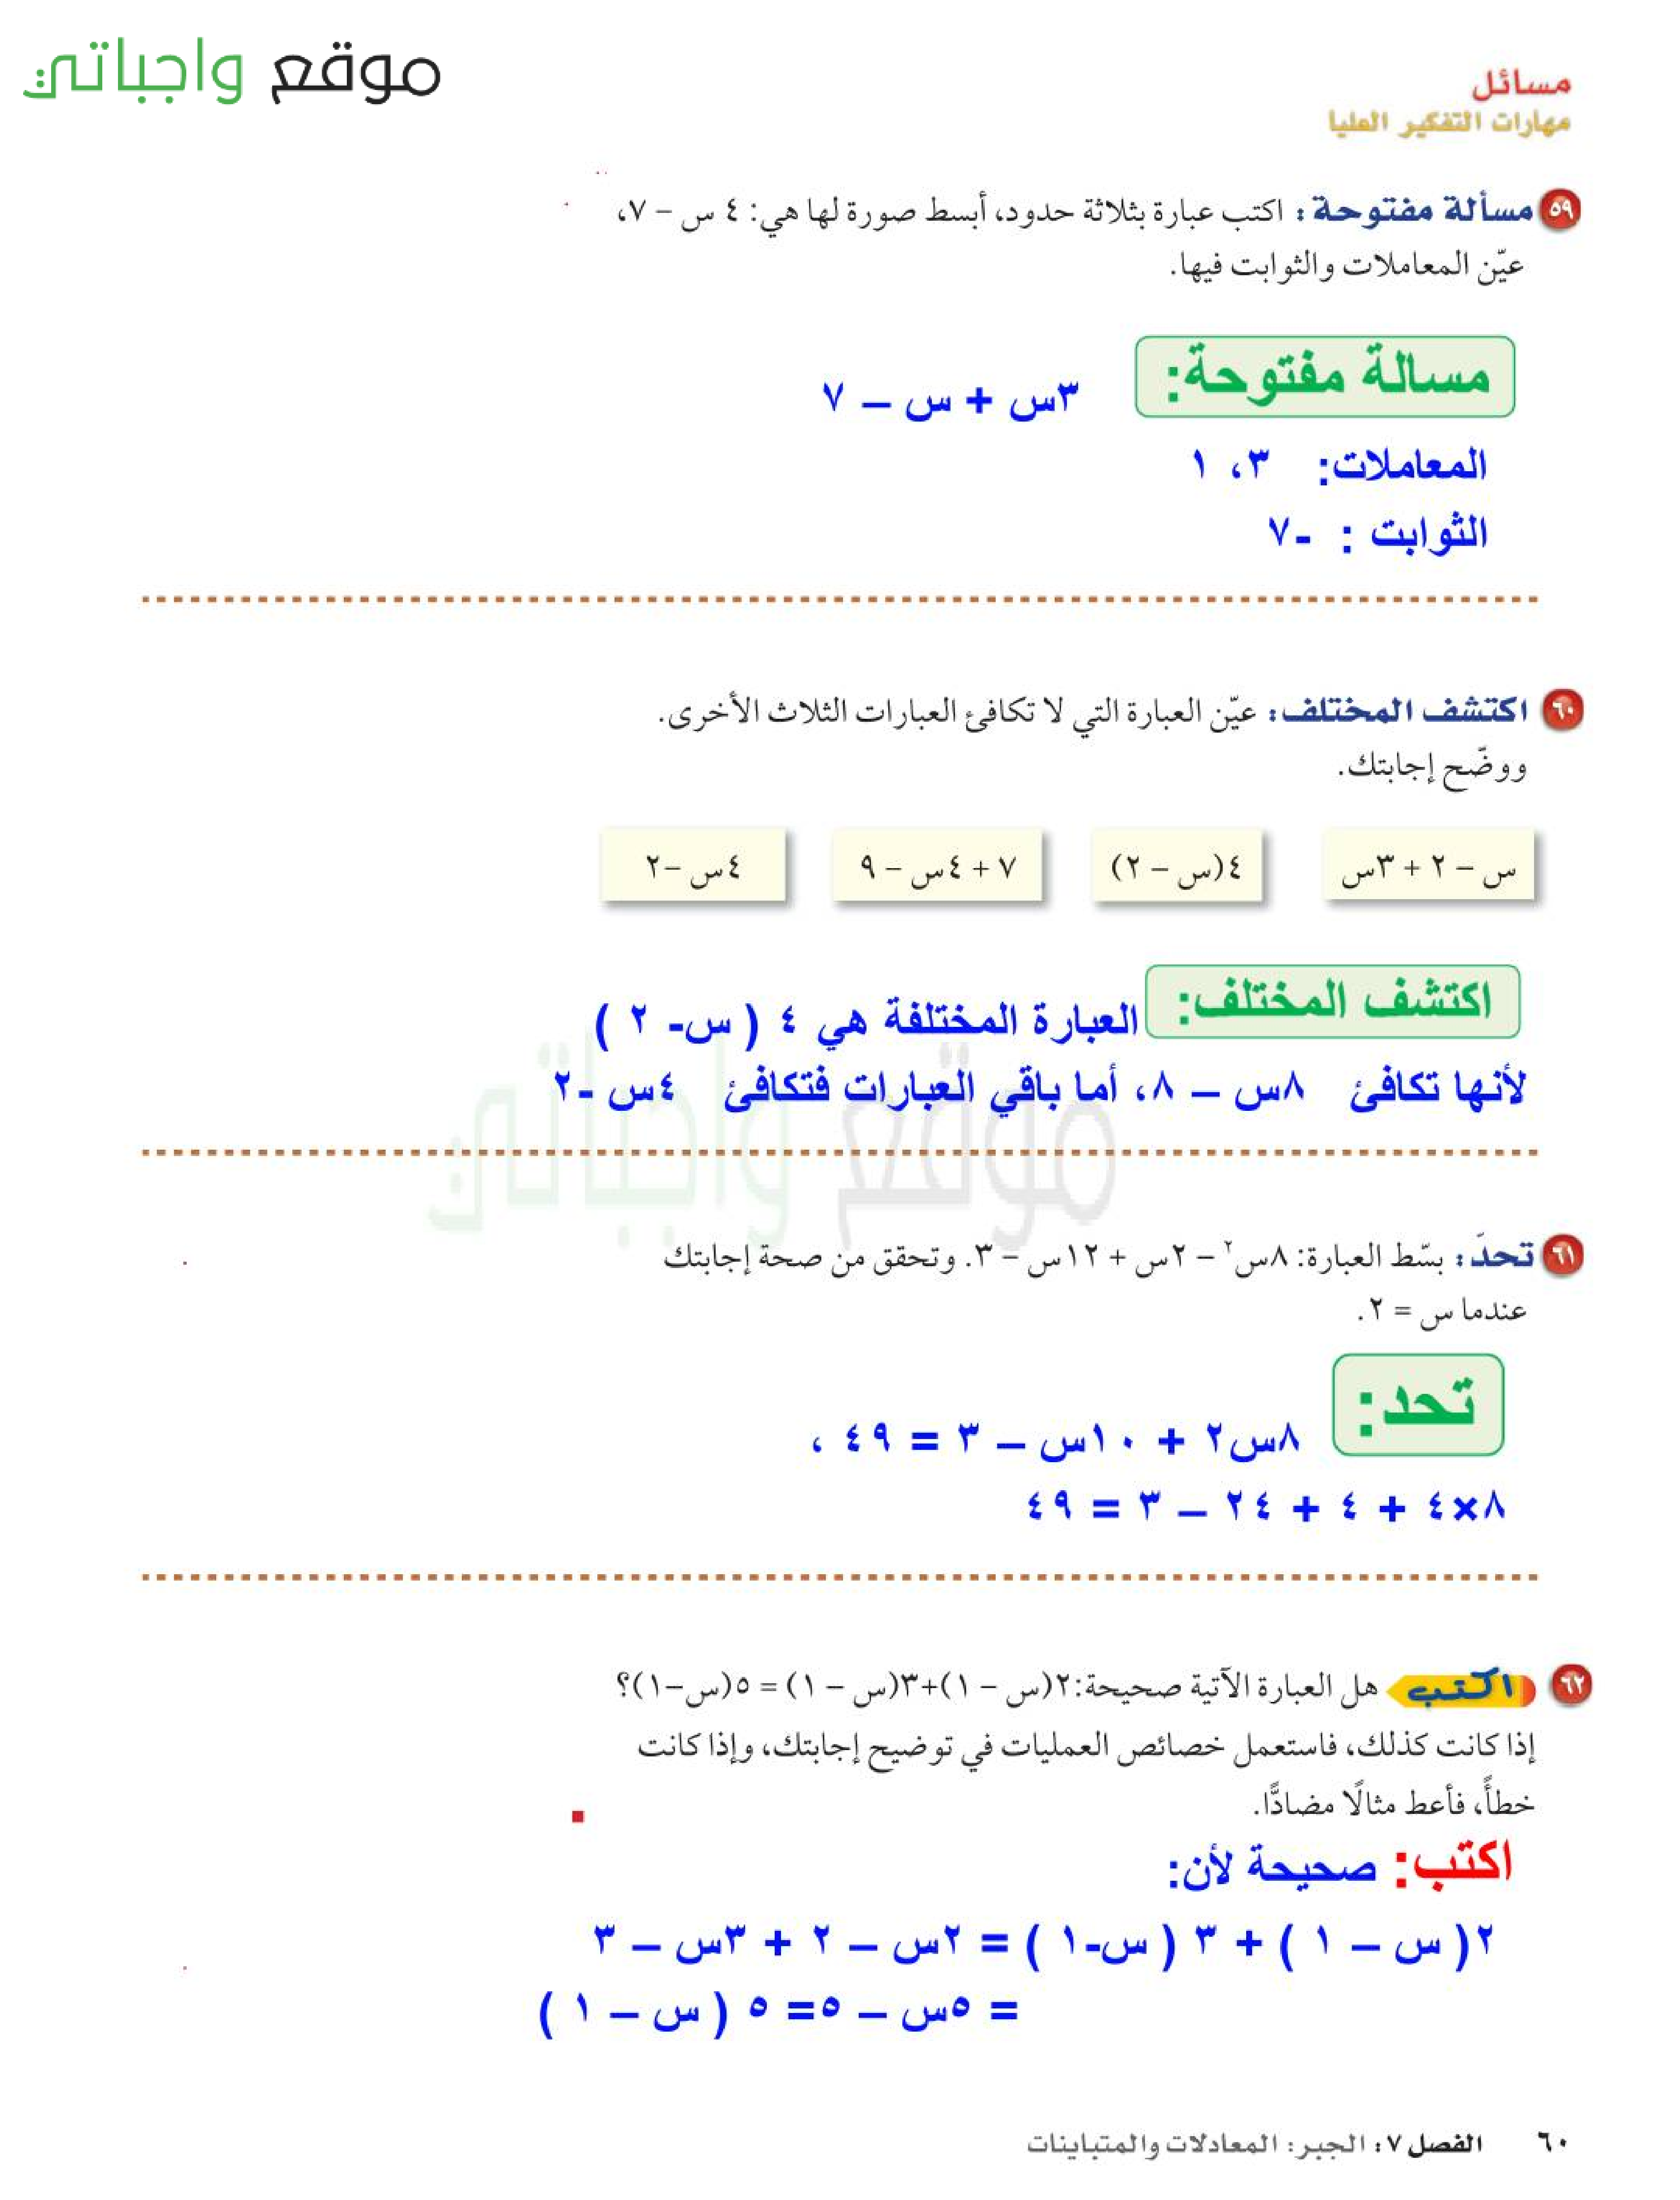 موقع واجباتي
مسائل
مهارات التفكير العليا
٥٩ مسألة مفتوحة: اكتب عبارة بثلاثة حدود، أبسط صورة لها هي: ٤ س – ٧،
عيّن المعاملات والثوابت فيها.
مسالة مفتوحة: ٣س + س – ٧
المعاملات: ٣، ١
الثوابت : -٧
٦٠ اكتشف المختلف: عيّن العبارة التي لا تكافئ العبارات الثلاث الأخرى.
ووضّح إجابتك.
س – ٢ + ٣س ٤(س – ٢) ٧ + ٤س – ٩ ٤س –٢
اكتشف المختلف: العبارة المختلفة هي ٤ ( س- ٢ )
لأنها تكافئ ٨س – ٨، أما باقي العبارات فتكافئ ٤س -٢
موقع واجباتي
٦١ تحدَّ: بسّط العبارة: ٨س٢ – ٢س + ١٢س – ٣. وتحقق من صحة إجابتك
عندما س = ٢.
تحد: ٨س٢ + ١٠س – ٣ = ٤٩ ،
٨×٤ + ٤ + ٢٤ – ٣ = ٤٩
٦٢ اكتب هل العبارة الآتية صحيحة:٢(س – ١)+٣(س – ١) = ٥(س–١)؟
إذا كانت كذلك، فاستعمل خصائص العمليات في توضيح إجابتك، وإذا كانت
خطأً، فأعط مثالًا مضادًّا.
اكتب: صحيحة لأن:
٢( س – ١ ) + ٣ ( س-١ ) = ٢س – ٢ + ٣س – ٣
= ٥س – ٥= ٥ ( س – ١ )
٦٠ الفصل ٧: الجبر: المعادلات والمتباينات